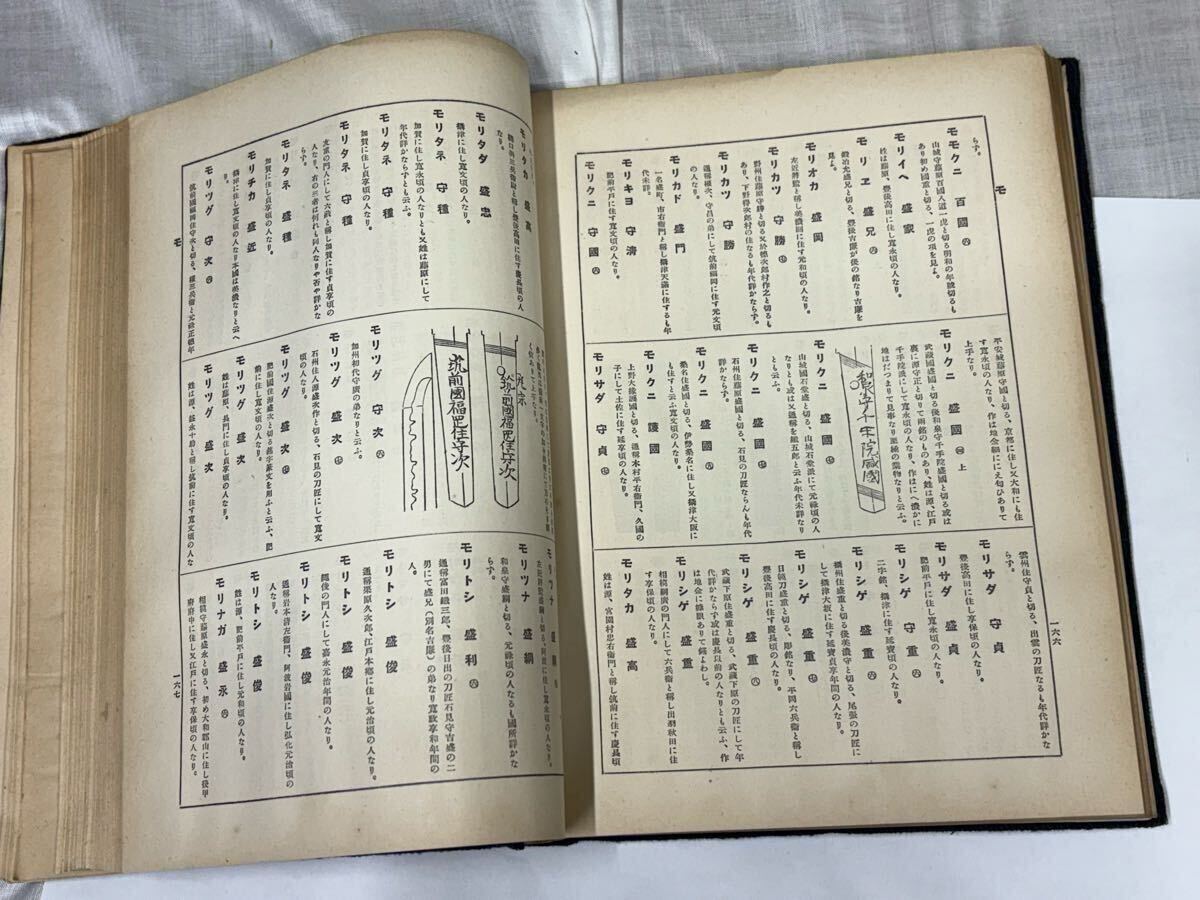 モ
らず。
モクニ 百國 ㊅
山城守藤原百國入道一虎と切る明和の年號切るも
あり初め國重と切る、一虎の項を見よ。
モリイヘ 盛家
姓は藤原、豊後高田に住し寛永頃の人なり。
モリヱ 盛兄 ㊅
鍛冶光盛兄と切る、豊後吉廣が後の銘なり吉廣を
見よ。
モリオカ 盛岡
左近將監と稱し美濃國に住す元和頃の人なり。
モリカツ 守勝 ㊆
野州住藤原守勝と切る又於德次郎村作之と切るも
あり、下野得次郎村の住なるも年代詳かならず。
モリカツ 守勝
通稱權次、守昌の弟にして筑前福岡に住す元文頃
の人なり。
モリカド 盛門
一名盛町、市右衞門と稱し攝津天滿に住するも年
代未詳。
モリキヨ 守淸
モリクニ 守國 ㊅
肥前平戸に住す寛文頃の人なり。
平安城藤原守國と切る、京都に住し又大和にも住
す寛永頃の人なり、作は地金細ににえ匂ひありて
上手なり。
モリクニ 盛國 ㊃ 上
武藏國盛國と切る後和泉守千手院盛國と切る或は
裏に源守正と切りて兩銘のものあり、姓は源、江戸
千手院派にして寛永頃の人なり、作はにへ濃かに
地はだつまりて見事なり至極の業物なりと云ふ。
和泉守千手院盛國
モリクニ 盛國 ㊆
山城國石堂盛と切る、山城石堂派にて元祿頃の人
なりとも或は又通稱を鐵五郎と云ふ年代未詳なり
とも云ふ。
モリクニ 盛國 ㊅
石州住藤原盛國と切る、石見の刀匠ならんも年代
詳かならず。
モリクニ 盛國 ㊅
桑名住盛國と切る、伊勢桑名に住し又攝津大坂に
も住すと云ふ寛文頃の人なり。
モリクニ 護國
上野大掾護國と切る、通稱本村平右衞門、久國の
子にして土佐に住す延享頃の人なり。
モリサダ 守貞 ㊆
雲州住守貞と切る、出雲の刀匠なるも年代詳かな
らず。
モリサダ 守貞
豊後高田に住し享保頃の人なり。
モリサダ 盛貞 ㊅
肥前平戸に住し寛永頃の人なり。
モリシゲ 守重 ㊅
二字銘、攝津に住し延寶頃の人なり。
モリシゲ 盛重 ㊅
播州住盛重と切る後美濃守と切る、尾張の刀匠に
して攝津大坂に住す延寶貞享年間の人なり。
モリシゲ 盛重 ㊆
豊後高田に住す慶長頃の人なり。
モリシゲ 盛重 ㊇
日饒刀盛重と切る、彫銘なり、平岡六兵衞と稱し
武藏下原住盛重と切る、武藏下原の刀匠にして年
代詳かならず或は慶長以前の人なりとも云ふ、作
は地金に縮眼ありて銘よわし。
モリシゲ 盛重
相模綱廣の門人にして六兵衞と稱し出羽秋田に住
す享保頃の人なり。
モリタカ 盛高
姓は源、宮園村忠右衞門と稱し筑前に住す慶長頃
一六六
モリタカ 盛高
モリタダ 盛忠
攝津に住し寛文頃の人なり。
モリタネ 守種
加賀に住し寛永頃の人なりとも又姓は藤原にして
年代詳かならずとも云ふ。
モリタネ 守種
加賀に住し貞享頃の人なり。
モリタネ 守種
友重の門人にして六政と稱し加賀に住す貞享頃の
人なり、右の三者は何れも同人なりや否や詳かな
らず。
モリタネ 盛種
加賀に住し貞享頃の人なり。
モリチカ 盛近
攝津に住し寛文頃の人なり本國は美濃なりと云へ
り。
モリツグ 守次 ㊅
筑前國福岡住守次
筑前國福岡住守次
モリツグ 守次 ㊅
加州初代守廣の弟なりと云ふ。
モリツグ 盛次 ㊆
石州住人源盛次作と切る、石見の刀匠にして寛文
頃の人なり。
モリツグ 盛次 ㊆
肥前國住源盛次と切る銘字篆文を用ふと云ふ、肥
前に住し寛文頃の人なり。
モリツグ 盛次
姓は藤原、長門に住し貞享頃の人なり。
モリツグ 盛次
姓は源、甚永十郎と稱し筑前に住す寛文頃の人な
モリツナ
モリツナ 盛綱
和泉守盛綱と切る、元祿頃の人なるも國所詳かな
らず。
モリトシ 盛利 ㊅
通稱富田鐵三郎、豊後日出の刀匠石見守吉盛の二
男にて盛兄(別名吉廣)の弟なり寛政享和年間の
人。
モリトシ 盛俊
通稱栗原久次郎、江戸本鄕に住し元治頃の人なり。
モリトシ 盛俊
隨後の門人にして嘉永元治年間の人なり。
モリトシ 盛俊
通稱岩本淸左衞門、阿波岩國に住し弘化元治頃の
人なり。
モリトシ 盛俊
姓は源、肥前平戸に住し元和頃の人なり。
モリナガ 盛永 ㊅
相模守藤原盛永と切る、初め大和郡山に住し後甲
府府中に住し又江戸に住す享保頃の人なり。
モ
一六七